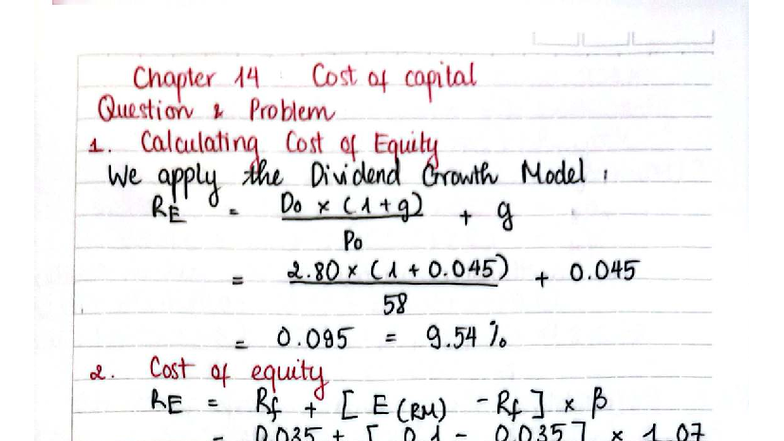 Chapter 14 : Cost of capital
Question & Problem
1. Calculating Cost of Equity
We apply the Dividend Growth Model :
RE = D0 x (1+g) / P0 + g
= 2.80 x (1 + 0.045) / 58 + 0.045
= 0.095 = 9.54 %
2. Cost of equity
RE = Rf + [ E(RM) - Rf ] x β
= 0.035 + [ 0.1 - 0.035 ] x 1.07